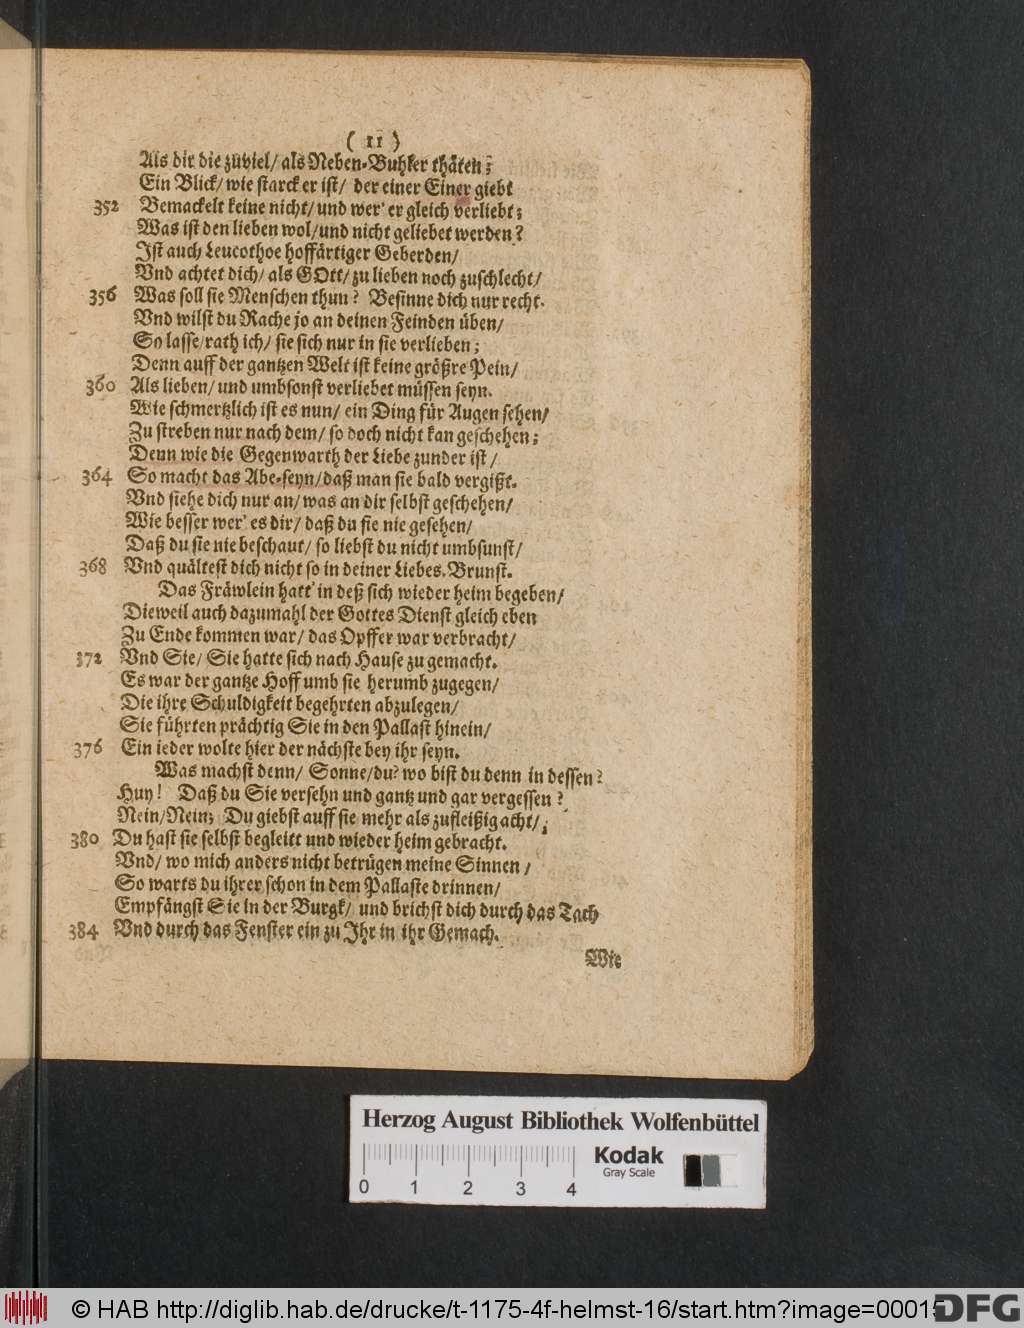 ( 11 )
Als dir die zuviel/ als Neben-Buhler thäten;
Ein Blick/ wie starck er ist/ der einer Einer giebt
352 Bemackelt keine nicht/ und wer' er gleich verliebt;
Was ist den lieben wol/ und nicht geliebet werden?
Ist auch Leucothoe hoffärtiger Geberden/
Vnd achtet dich/ als GOtt/ zu lieben noch zuschlecht/
356 Was soll sie Menschen thun? Besinne dich nur recht.
Vnd wilst du Rache jo an deinen Feinden üben/
So lasse/ rath ich/ sie sich nur in sie verlieben;
Denn auff der gantzen Welt ist keine größre Pein/
360 Als lieben/ und umbsonst verliebet müssen seyn.
Wie schmertzlich ist es nun/ ein Ding für Augen sehen/
Zu streben nur nach dem/ so doch nicht kan geschehen;
Denn wie die Gegenwarth der Liebe zunder ist/
364 So macht das Abe-seyn/ daß man sie bald vergißt.
Vnd siehe dich nur an/ was an dir selbst geschehen/
Wie besser wer' es dir/ daß du sie nie gesehen/
Daß du sie nie beschaut/ so liebst du nicht umbsunst/
368 Vnd quältest dich nicht so in deiner Liebes-Brunst.
Das Fräwlein hatt' in deß sich wieder heim begeben/
Dieweil auch dazumahl der Gottes Dienst gleich eben
Zu Ende kommen war/ das Opffer war verbracht/
372 Vnd Sie/ Sie hatte sich nach Hause zu gemacht.
Es war der gantze Hoff umb sie herumb zugegen/
Die ihre Schuldigkeit begehrten abzulegen/
Sie führten prächtig Sie in den Pallast hinein/
376 Ein ieder wolte hier der nächste bey ihr seyn.
Was machst denn/ Sonne/ du? wo bist du denn in dessen?
Huy! Daß du Sie versehn und gantz und gar vergessen?
Nein/ Nein; Du giebst auff sie mehr als zufleißig acht/;
380 Du hast sie selbst begleitt und wieder heim gebracht.
Vnd/ wo mich anders nicht betrügen meine Sinnen/
So warts du ihrer schon in dem Pallaste drinnen/
Empfängst Sie in der Burgk/ und brichst dich durch das Tach
384 Vnd durch das Fenster ein zu Ihr in ihr Gemach.
Wie
Herzog August Bibliothek Wolfenbüttel
Kodak
Gray Scale
0 1 2 3 4
© HAB http://diglib.hab.de/drucke/t-1175-4f-helmst-16/start.htm?image=00015
DFG